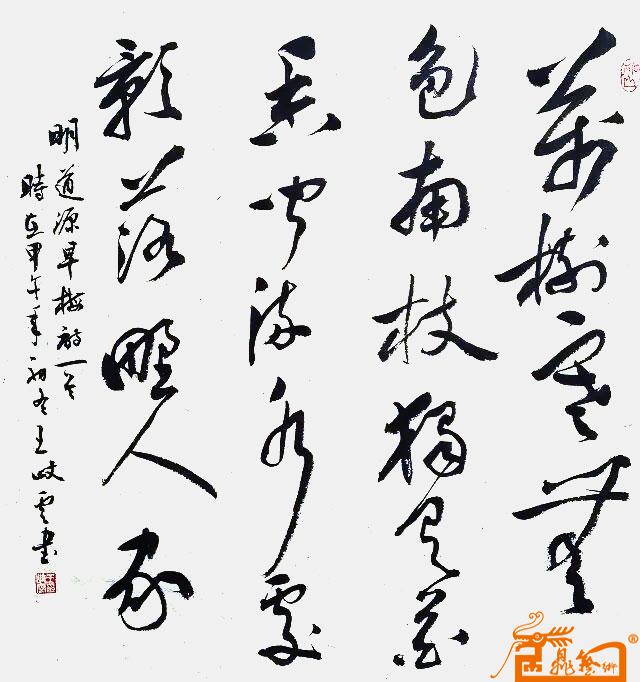 萬樹寒無
色南枝獨有花
香聞流水處
影落野人家
明道源早梅詩一首
時在甲午年初冬王岐雲書